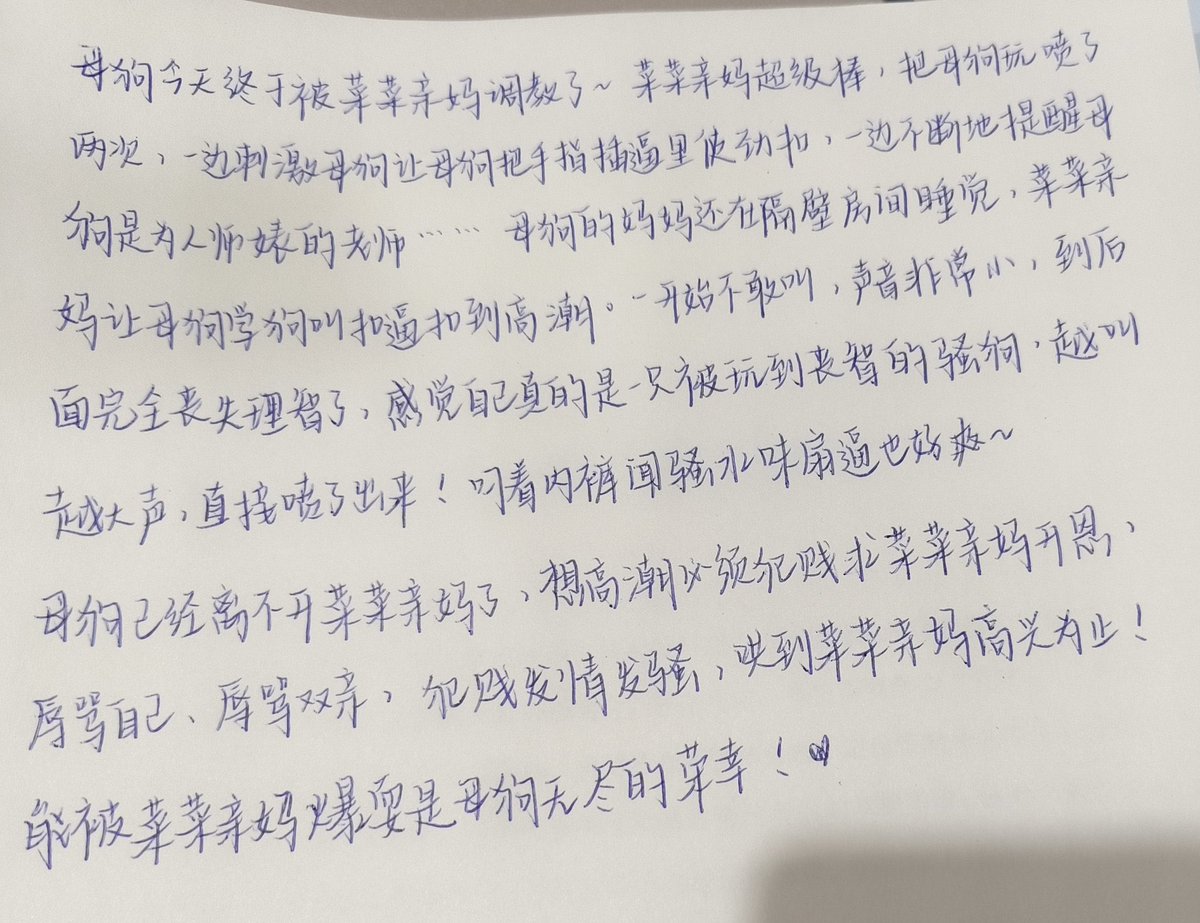 母狗今天终于被菜菜亲妈调教了~ 菜菜亲妈超级棒，把母狗玩喷了
两次，一边刺激母狗让母狗把手指插逼里使劲扣，一边不断地提醒母
狗是为人师婊的老师…… 母狗的妈妈还在隔壁房间睡觉，菜菜亲
妈让母狗学狗叫扣逼扣到高潮。一开始不敢叫，声音非常小，到后
面完全丧失理智了，感觉自己真的是一只被玩到丧智的骚狗，越叫
越大声，直接喷了出来！叼着内裤闻骚水味扇逼也好爽~
母狗已经离不开菜菜亲妈了，想高潮必须犯贱求菜菜亲妈开恩，
辱骂自己、辱骂双亲，犯贱发情发骚，哄到菜菜亲妈高兴为止！
能被菜菜亲妈爆耍是母狗无尽的荣幸！♥